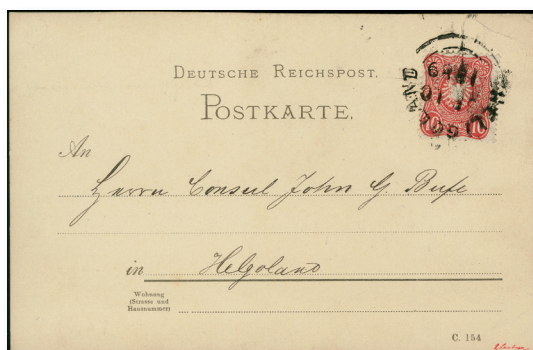 DEUTSCHE REICHSPOST.
POSTKARTE.
An
Herrn Consul John G Bufe
in Helgoland
Wohnung
(Strasse und
Hausnummer)
C. 154